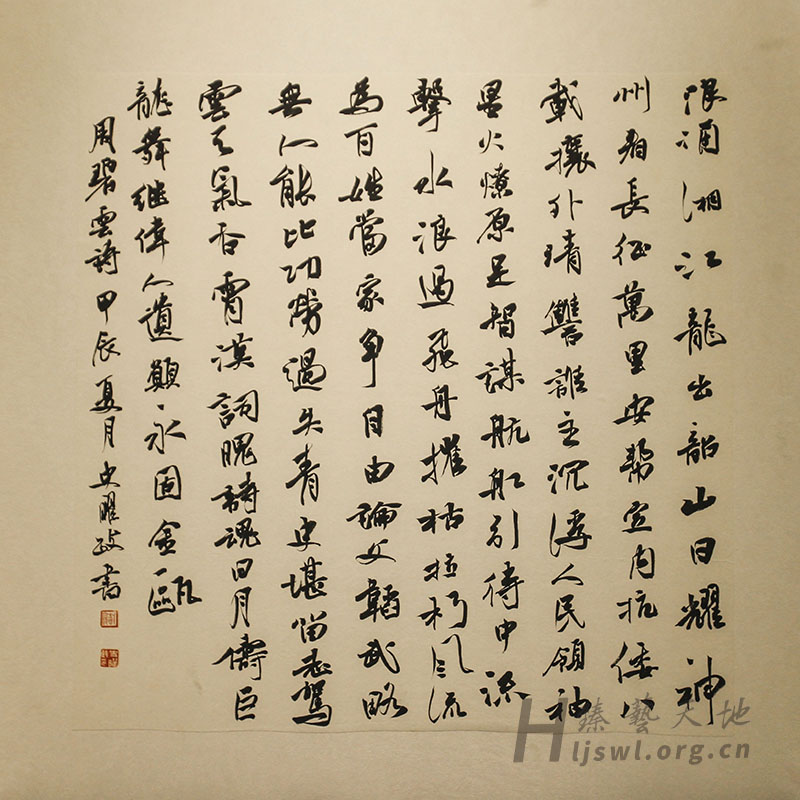 浪涌湘江龍出韶山日耀神
州看長征萬里安幫定内抗倭八
載攘外靖讐誰主沉浮人民領袖
星火燎原足智謀航船引待中流
擊水浪遏飛舟摧枯拉朽風流
為百姓當家争自由論文韜武略
無人能比功勞過失青史堪留志駕
雲天氣吞霄漢詞瑰詩魂日月儔巨
龍舞継偉人遺願永固金甌
周碧雲詩甲辰夏月史曜書
臻藝天地
Hljswl.org.cn